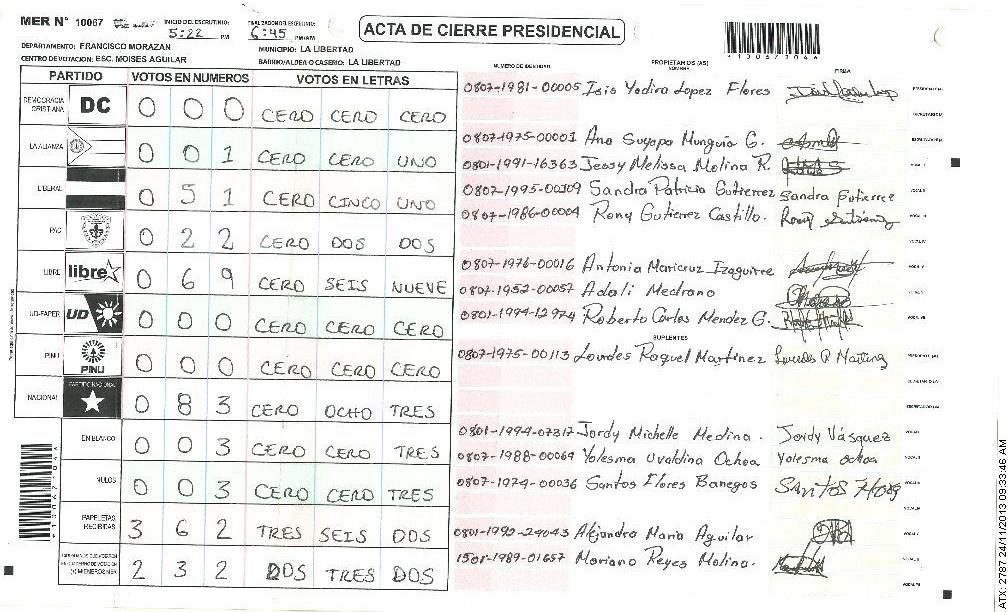 MER N° 10067 INICIO DEL ESCRUTINIO: 5:22 PM FINALIZACION DEL ESCRUTINIO: 6:45 PM/AM
ACTA DE CIERRE PRESIDENCIAL
DEPARTAMENTO: FRANCISCO MORAZAN MUNICIPIO: LA LIBERTAD
CENTRO DE VOTACION: ESC. MOISES AGUILAR BARRIO/ALDEA O CASERIO: LA LIBERTAD
PARTIDO VOTOS EN NUMEROS VOTOS EN LETRAS
DEMOCRACIA CRISTIANA DC 0 0 0 CERO CERO CERO
LA ALIANZA 0 0 1 CERO CERO UNO
LIBERAL 0 5 1 CERO CINCO UNO
PAC 0 2 2 CERO DOS DOS
LIBRE libre 0 6 9 CERO SEIS NUEVE
UD-FAPER UD 0 0 0 CERO CERO CERO
PINU PINU 0 0 0 CERO CERO CERO
NACIONAL PARTIDO NACIONAL 0 8 3 CERO OCHO TRES
EN BLANCO 0 0 3 CERO CERO TRES
NULOS 0 0 3 CERO CERO TRES
PAPELETAS RECIBIDAS 3 6 2 TRES SEIS DOS
2 3 2 DOS TRES DOS
NUMERO DE IDENTIDAD PROPIETARIOS (AS) NOMBRE FIRMA
0807-1981-00005 Isis Yodira Lopez Flores
0807-1975-00001 Ana Suyapa Munguia G.
0801-1991-16363 Jessy Melissa Molina R.
0807-1995-00109 Sandra Patricia Gutierrez Sandra Gutierrez
0807-1986-00004 Rony Gutierrez Castillo.
0807-1976-00016 Antonia Maricruz Izaguirre
0807-1952-00057 Adali Medrano
0801-1994-12974 Roberto Carlos Mendez G.
SUPLENTES
0807-1975-00113 Lourdes Raquel Martinez Lourdes R Martinez
0801-1994-07317 Jordy Michelle Medina. Jordy Vásquez
0807-1988-00069 Yolesma Uvaldina Ochoa Yolesma Ochoa
0807-1974-00036 Santos Flores Banegas
0801-1992-24043 Alejandra Maria Aguilar
1501-1989-01657 Mariano Reyes Molina.
ATX: 2787 24/11/2013 09:33:46 AM